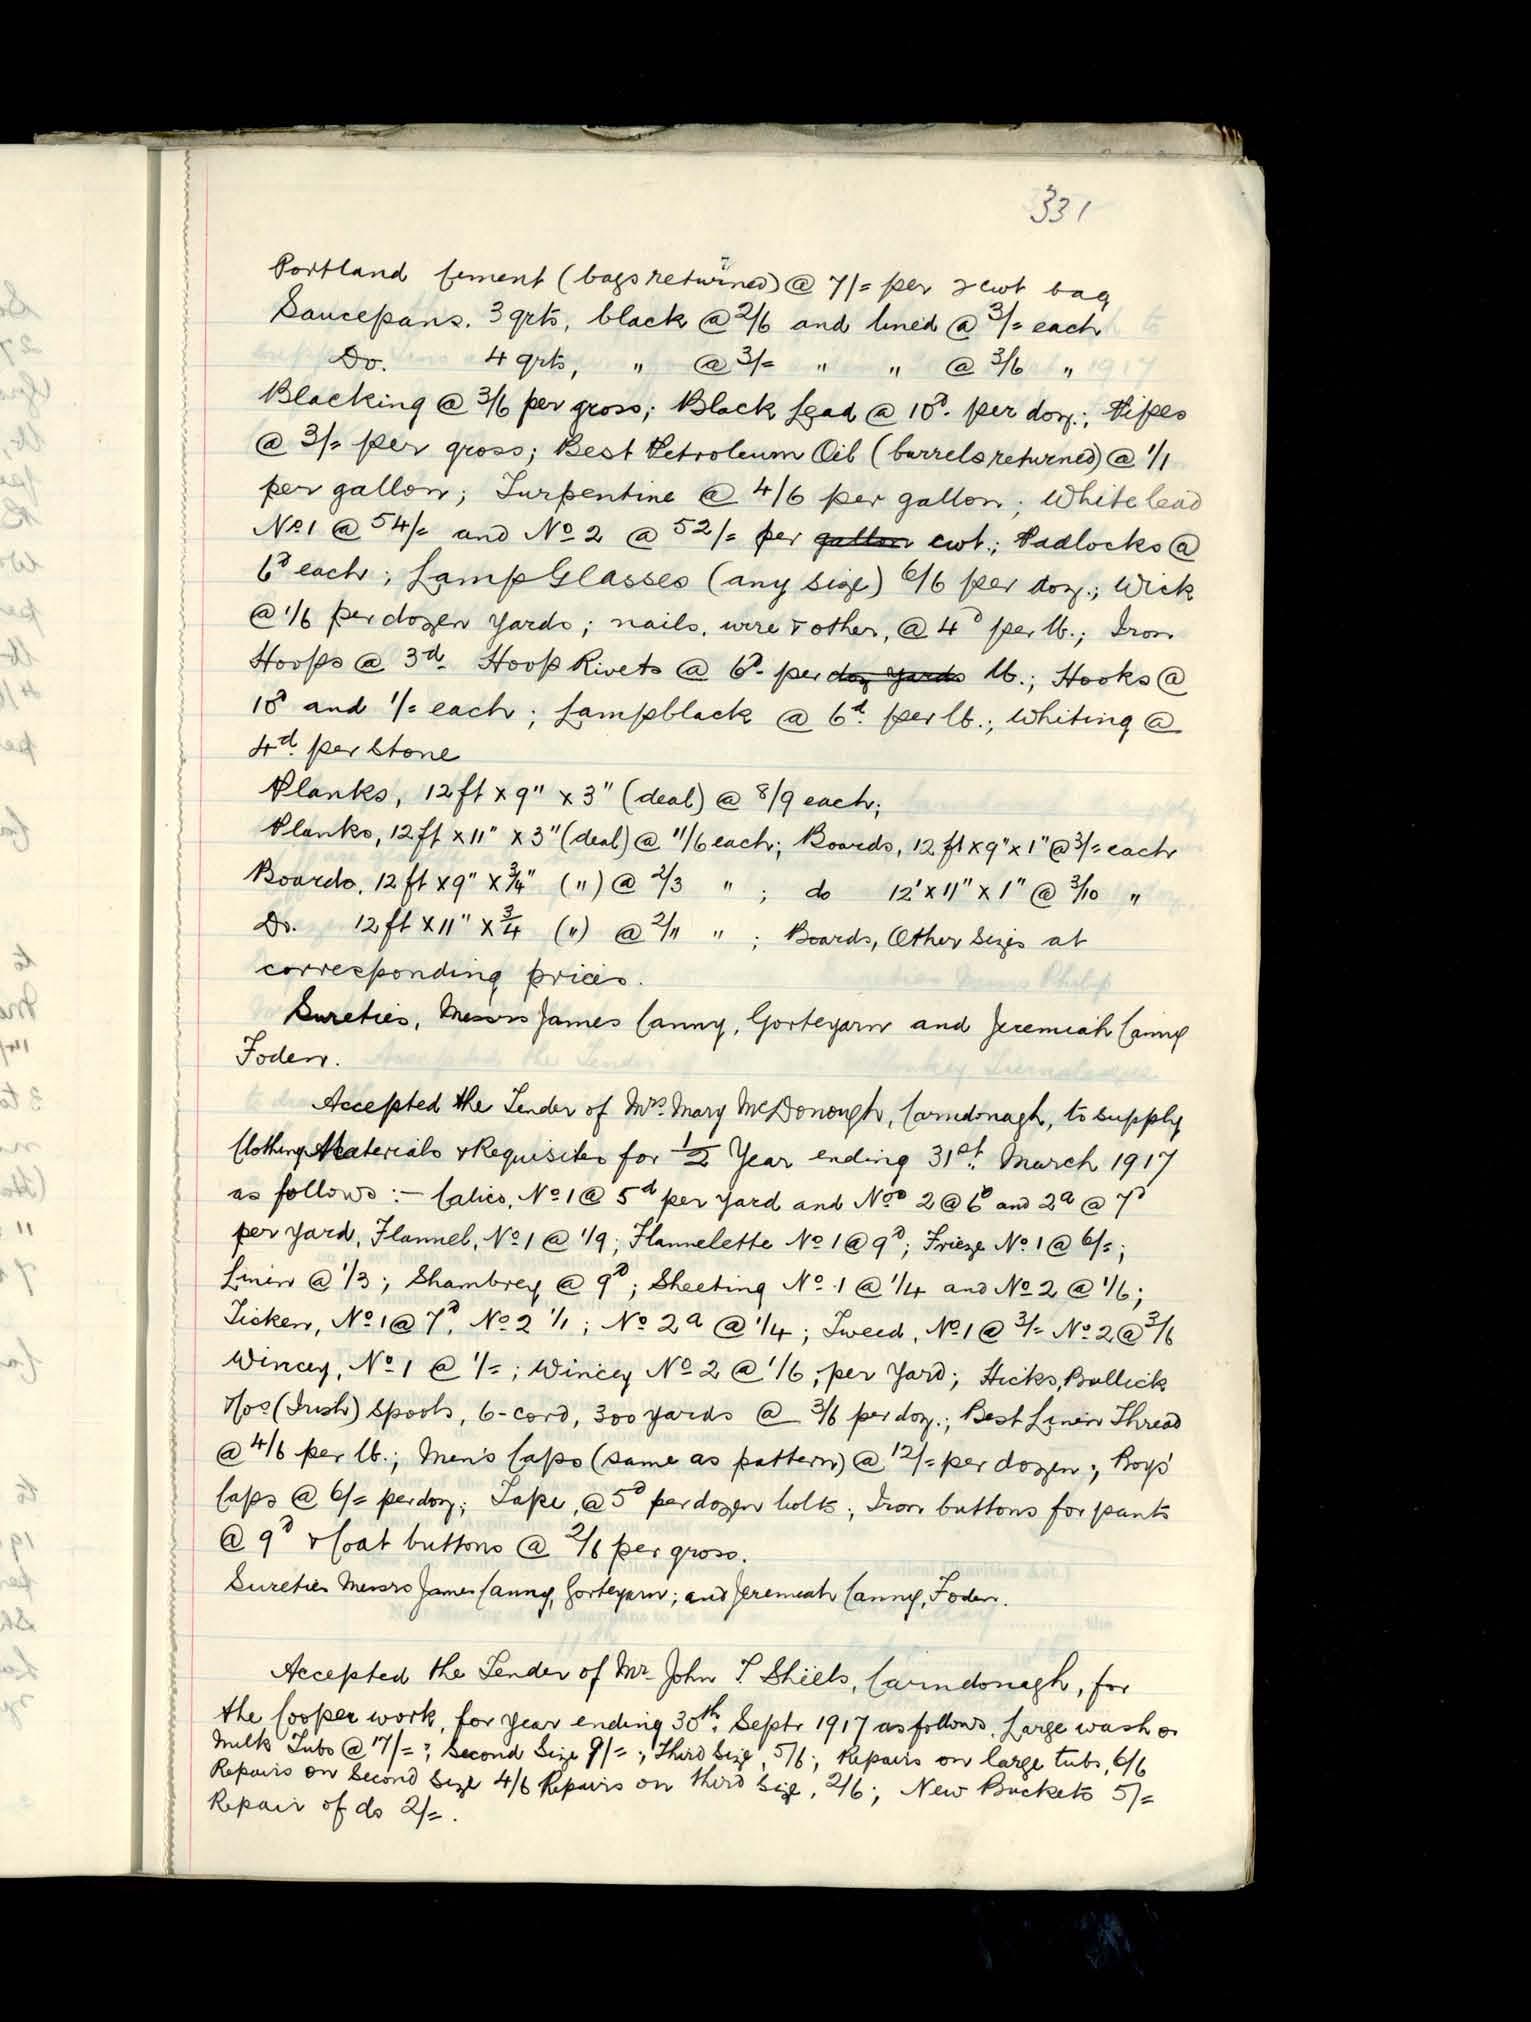 331
Portland Cement (bags returned) @ 7/= per 2 cwt bag
Saucepans. 3 qrts, black @ 2/6 and lined @ 3/= each
Do. 4 qrts, " @ 3/= " " @ 3/6 "
Blacking @ 3/6 per gross; Black Lead @ 10d. per doz.; Pipes
@ 3/= per gross; Best Petroleum Oil (barrels returned) @ 1/1
per gallon; Turpentine @ 4/6 per gallon; White lead
No 1 @ 54/= and No 2 @ 52/= per gallon cwt.; Padlocks @
6d each; Lamp Glasses (any size) 6/6 per doz.; Wick
@ 1/6 per dozen yards; nails, wire & other, @ 4d per lb.; Iron
Hoops @ 3d. Hoop Rivets @ 6d. per doz yards lb.; Hooks @
10d and 1/= each; Lampblack @ 6d. per lb.; Whiting @
4d. per Stone
Planks, 12 ft x 9" x 3" (deal) @ 8/9 each;
Planks, 12 ft x 11" x 3" (deal) @ 11/6 each; Boards, 12 ft x 9" x 1" @ 3/= each
Boards, 12 ft x 9" x 3/4" (") @ 2/3 " ; do 12' x 11" x 1" @ 3/10 "
Do. 12 ft x 11" x 3/4 (") @ 2/11 " ; Boards, Other Sizes at
corresponding prices.
Sureties, Messrs James Canny, Gorteyarn and Jeremiah Canny
Foden.
Accepted the Tender of Mrs. Mary McDonough, Carndonagh, to supply
Clothing Materials & Requisites for 1/2 Year ending 31st. March 1917
as follows :- Calico, No 1 @ 5d per yard and Nos 2 @ 6d and 2a @ 7d
per yard, Flannel, No 1 @ 1/9; Flannelette No 1 @ 9d; Frieze No 1 @ 6/=;
Linen @ 1/3; Shambrey @ 9d; Sheeting No 1 @ 1/4 and No 2 @ 1/6;
Ticken, No 1 @ 7d. No 2 1/1; No 2a @ 1/4; Tweed, No 1 @ 3/= No 2 @ 3/6
Wincey, No 1 @ 1/=; Wincey No 2 @ 1/6; per Yard; Hicks, Bullick
& Cos (Irish) Spools, 6-cord, 300 yards @ 3/6 per doz.; Best Linen Thread
@ 4/6 per lb.; Men's Caps (same as pattern) @ 12/= per dozen; Boys'
Caps @ 6/= per doz; Tape, @ 5d per dozen bolts; Iron buttons for pants
@ 9d & Coat buttons @ 2/6 per gross.
Sureties Messrs James Canny, Gorteyarn; and Jeremiah Canny, Foden.
Accepted the Tender of Mr John T. Shiels, Carndonagh, for
the Cooper work, for year ending 30th. Septr 1917 as follows. Large wash or
Milk Tubs @ 17/=; Second Size 9/=; Third Size, 5/6; Repairs on large tubs, 6/6
Repairs on Second Size 4/6 Repairs on third Size, 2/6; New Buckets 5/=
Repair of do 2/=.